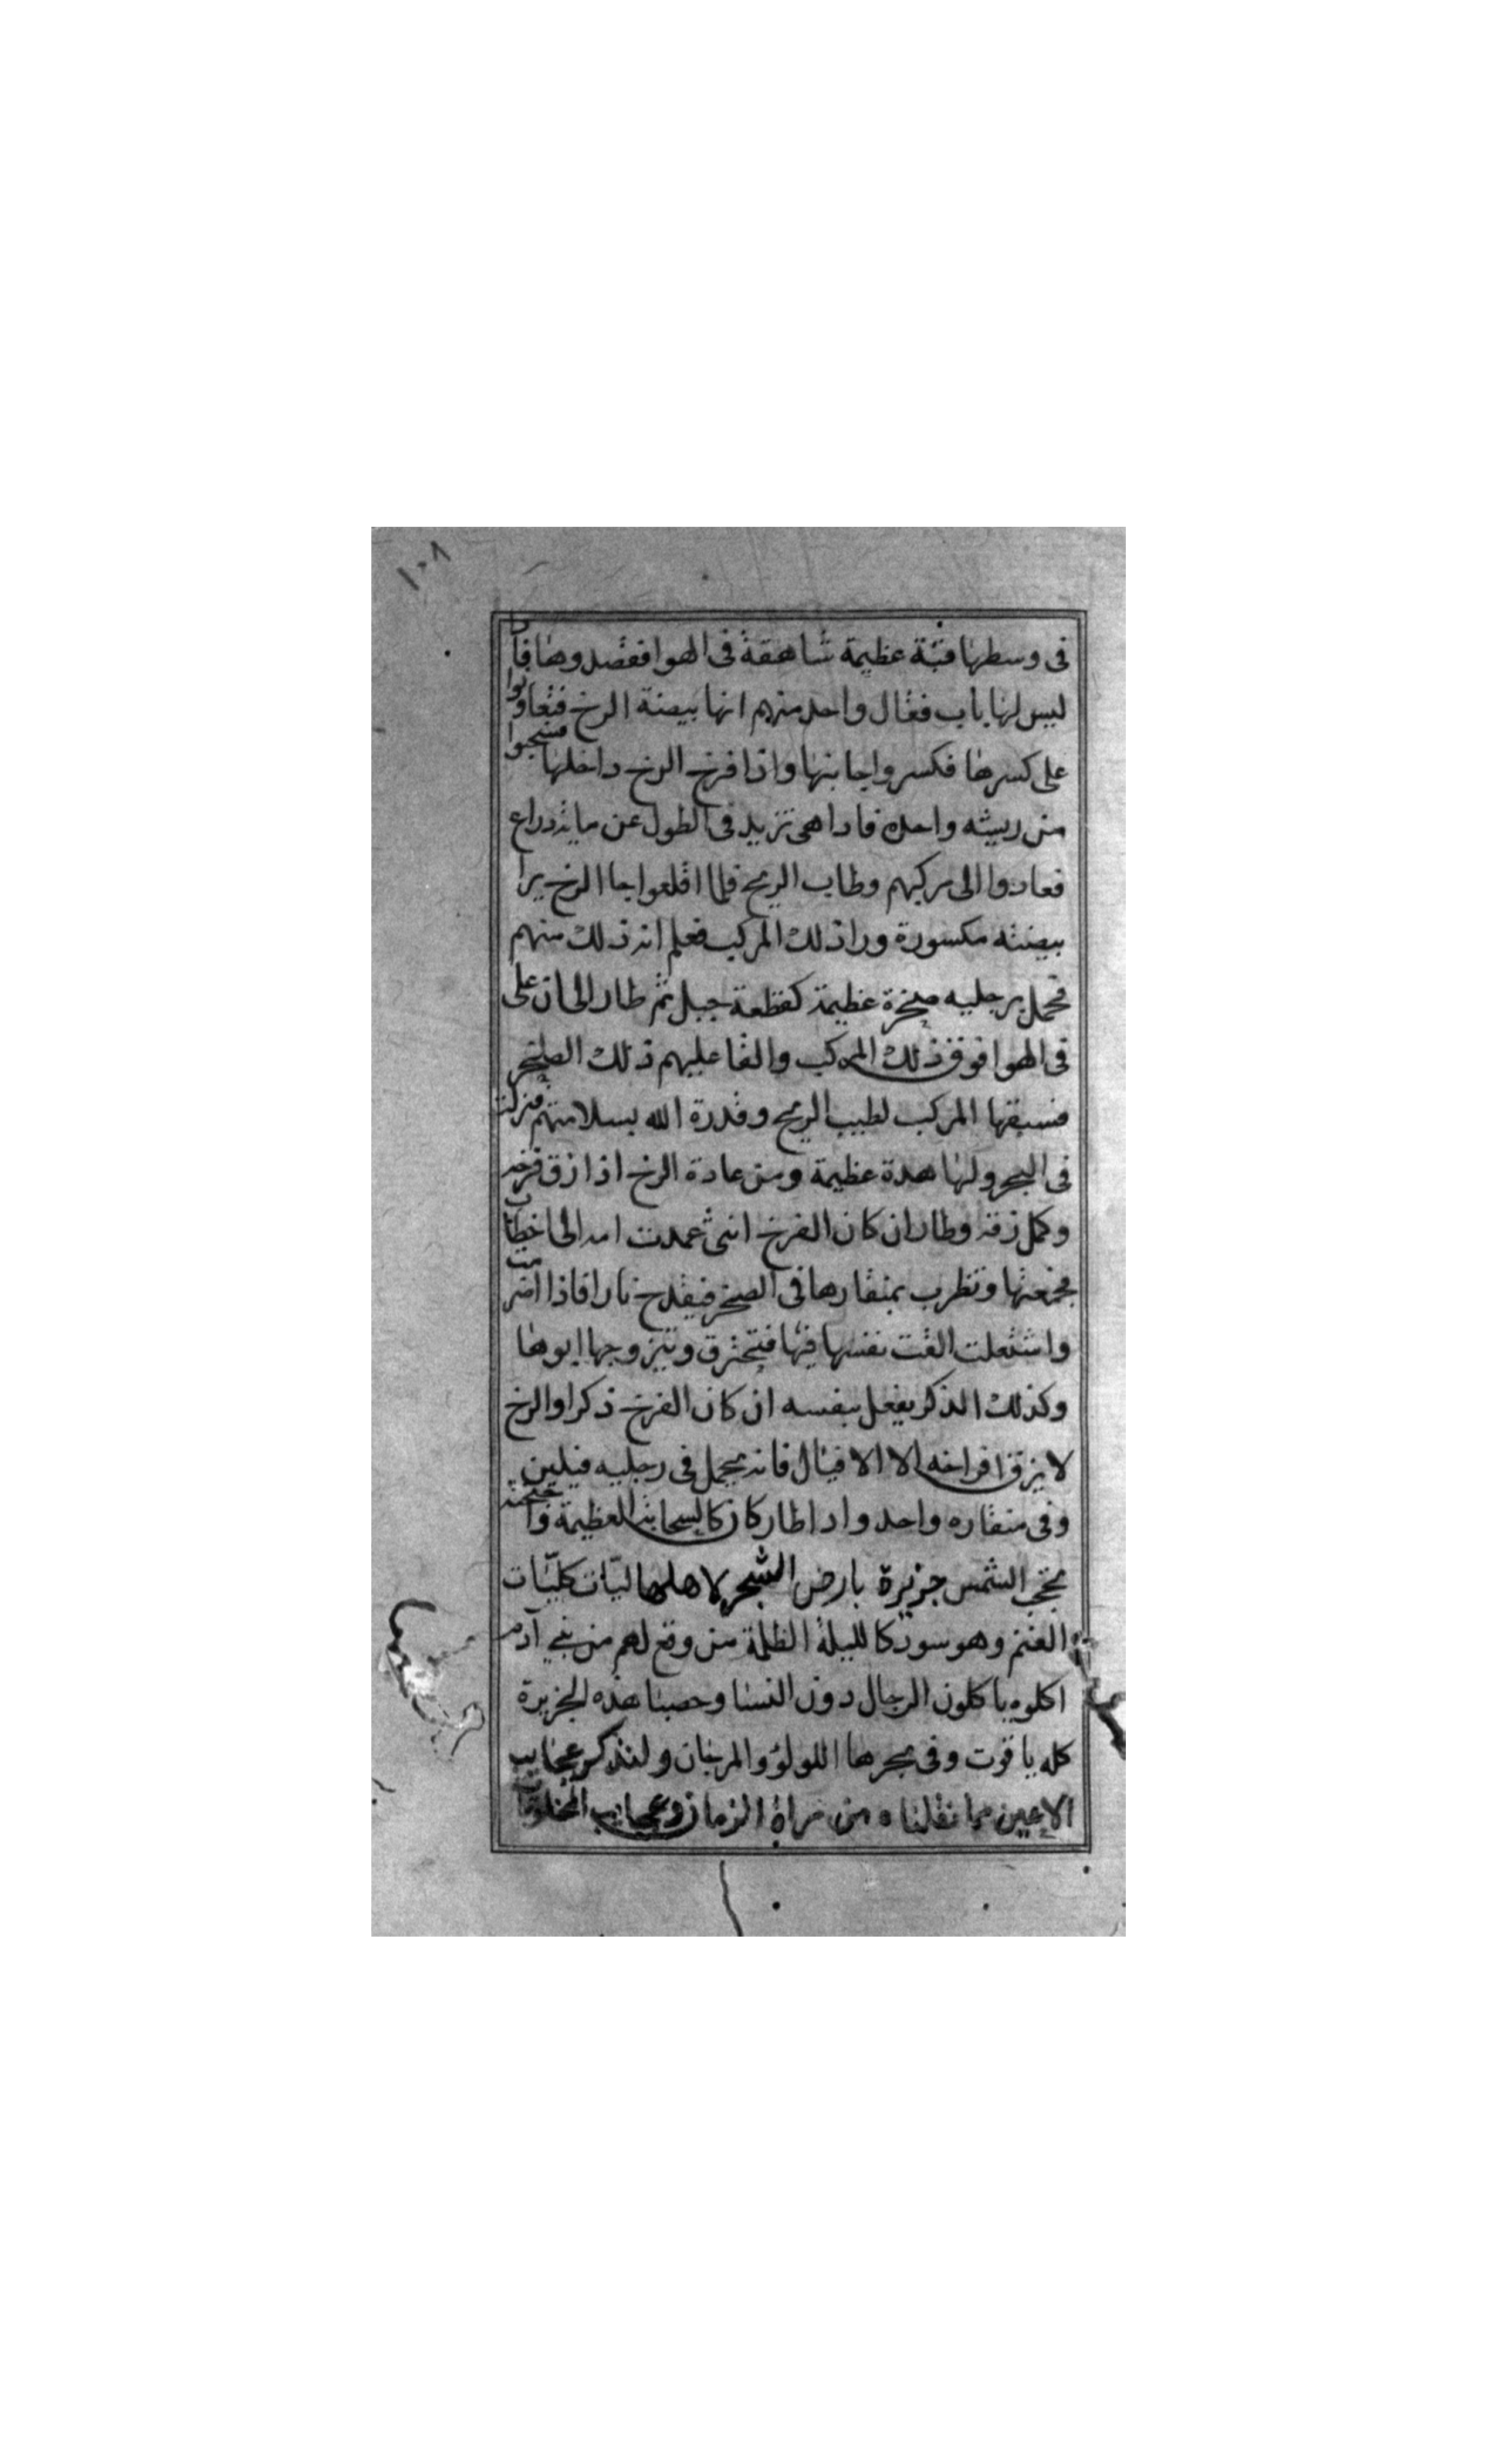 ١٠٨
في وسطها قبة عظيمة شاهقة في الهوا فقصدوها فاذا
ليس لها باب فقال واحد منهم انها بيضة الرخ فتعاونوا
على كسرها فكسروا جانبها واذا فرخ الرخ داخلها فسحبوا
من ريشه واحده فاذا هي تزيد في الطول عن مائة دراع
فعادوا الى مركبهم وطاب الريح فلما اقلعوا جا الرخ يرا
بيضته مكسورة وراا ذلك المركب فعلم انه ذلك منهم
فحمل برجليه صخرة عظيمة كقطعة جبل ثم طار الى ان على
في الهوا فوق ذلك المركب والقا عليهم ذلك الصخر
فسبقها المركب لطيب الريح وقدرة الله بسلامتهم فنزلت
في البحر ولها هدة عظيمة ومن عادة الرخ اذا زق فرخه
وكمل زقه وطار ان كان الفرخ انثى عمدت امه الى اخطاب
فجمعتها وتظرب بمنقارها في الصخر فيقدح نارا فاذا اضرمت
واشتعلت القت نفسها فيها فتحترق ويتزوجها ابوها
وكذلك الذكر يفعل بنفسه ان كان الفرخ ذكرا والرخ
لا يزق افراخه الا الافيال فانه يحمل في رجليه فيلين
وفي منقاره واحد واذا طار كان كالسحابة العظيمة واجنحته
تحجب الشمس جزيرة بارض الشحر لاهلها ليّات كليّات
الغنم وهو سود كالليلة الظلمة من وقع لهم من بني آدم
اكلوه ياكلون الرجال دون النسا وحصبا هذه الجزيرة
كله ياقوت وفي بحرها اللولؤ والمرجان ولنذكر عجايب
الاعين مما نقلناه من مراة الزمان وعجايب المخلوقات